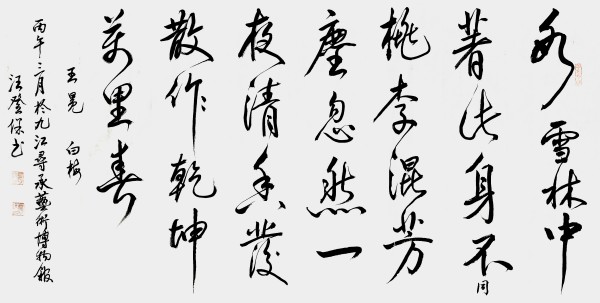 冰雪林中
著此身不同
桃李混芳
塵忽然一
夜清香發
散作乾坤
萬里春
王冕 白梅
丙午三月於九江尋承藝術博物館
汪登保书